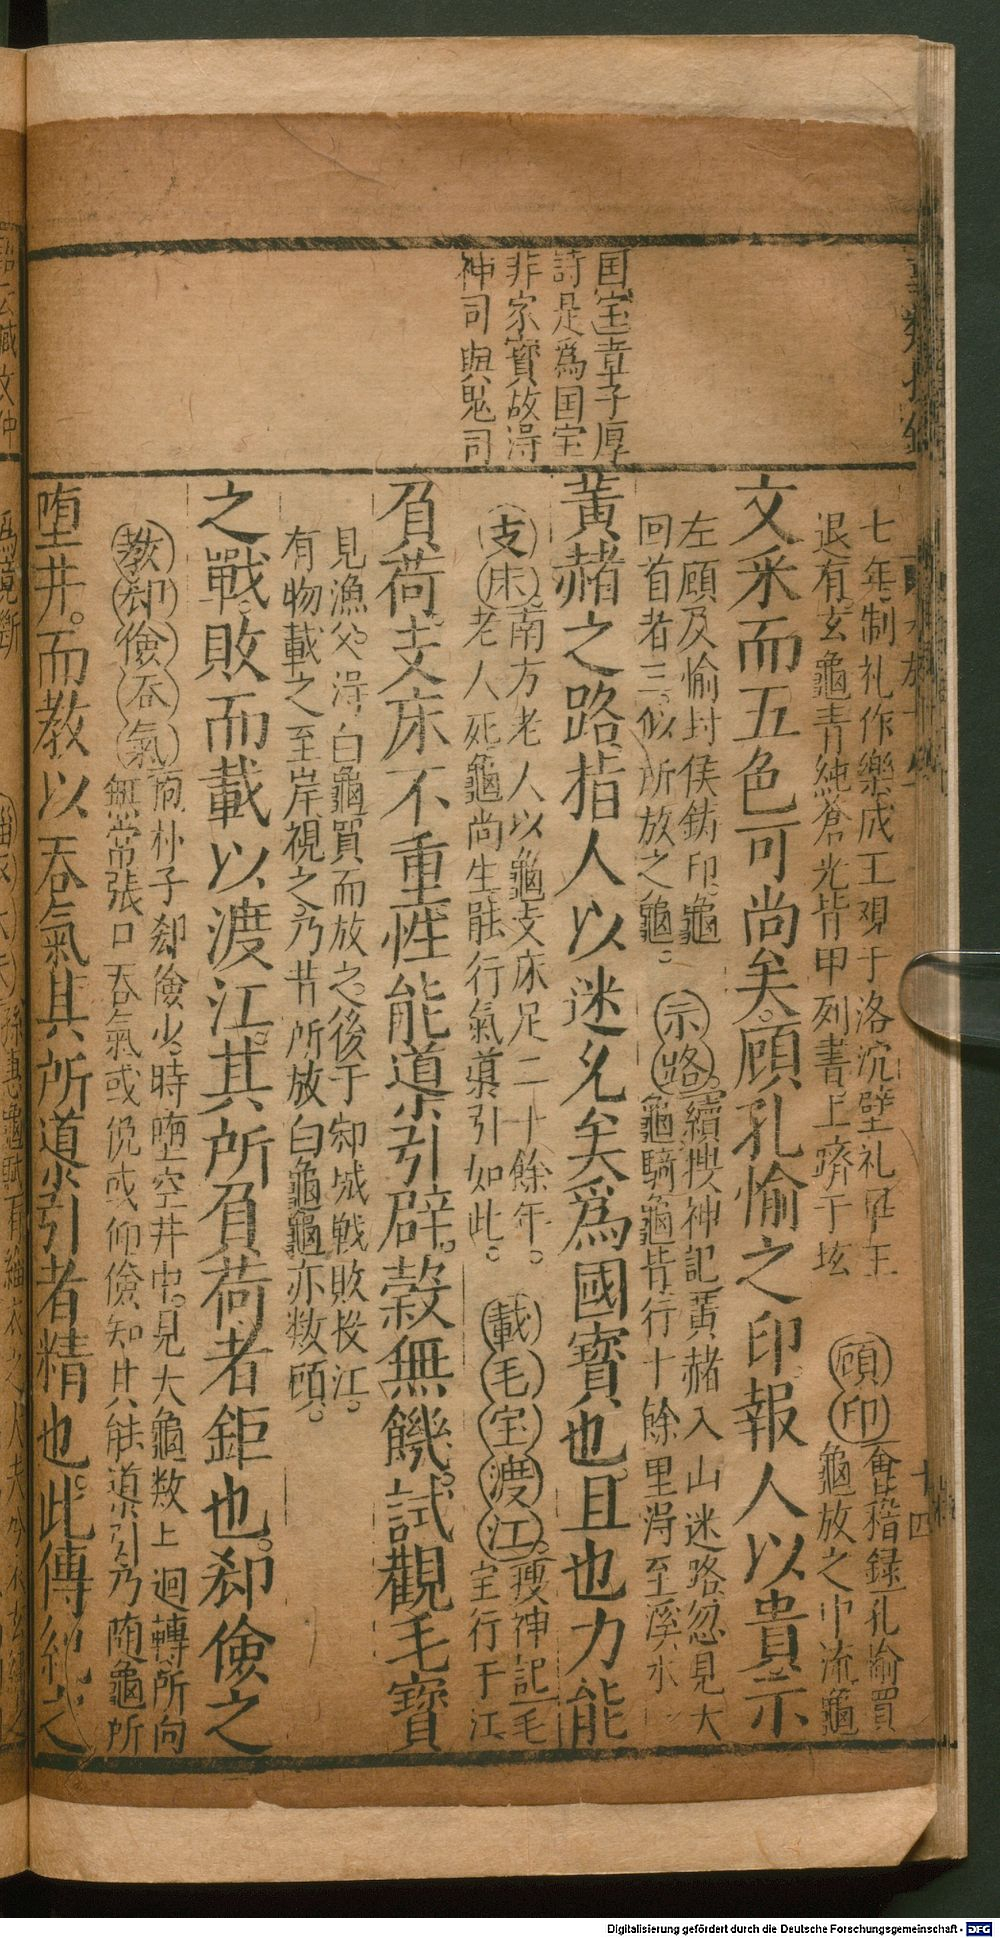 国宝章子厚
詩是爲国宝
非家寳故淂
神司與鬼司
七年制礼作樂成王覌于洛沉壁礼畢王
退有玄龜青純蒼光背甲列書上躋于坛
顧印
會稽録孔愉買
龜放之中流龜
文采而五色可尚矣顧孔愉之印報人以貴示
左顧及愉封侯鋳印龜
回首者三似所放之龜
示路
續搜神記黄赭入山迷路忽見大
龜騎龜背行十餘里淂至溪水
黄赭之路指人以迷允矣爲國寳也且也力能
支床
南方老人以龜支床足二十餘年
老人死龜尚生能行氣導引如此
載毛宝渡江
搜神記毛
宝行于江
負荷支床不重性能導引辟榖無饑試觀毛寳
見漁父淂白龜買而放之後于邾城戦敗投江
有物載之至岸視之乃昔所放白龜龜亦数顧
之戰敗而載以渡江其所負荷者鉅也郄儉之
教郄儉吞氣
抱朴子郄儉少時堕空井中見大龜数上迴轉所向
無常張口吞氣或俛或仰儉知其能導引乃随龜所
堕井而教以吞氣其所導引者精也此傳紀之
十四
Digitalisierung gefördert durch die Deutsche Forschungsgemeinschaft - DFG